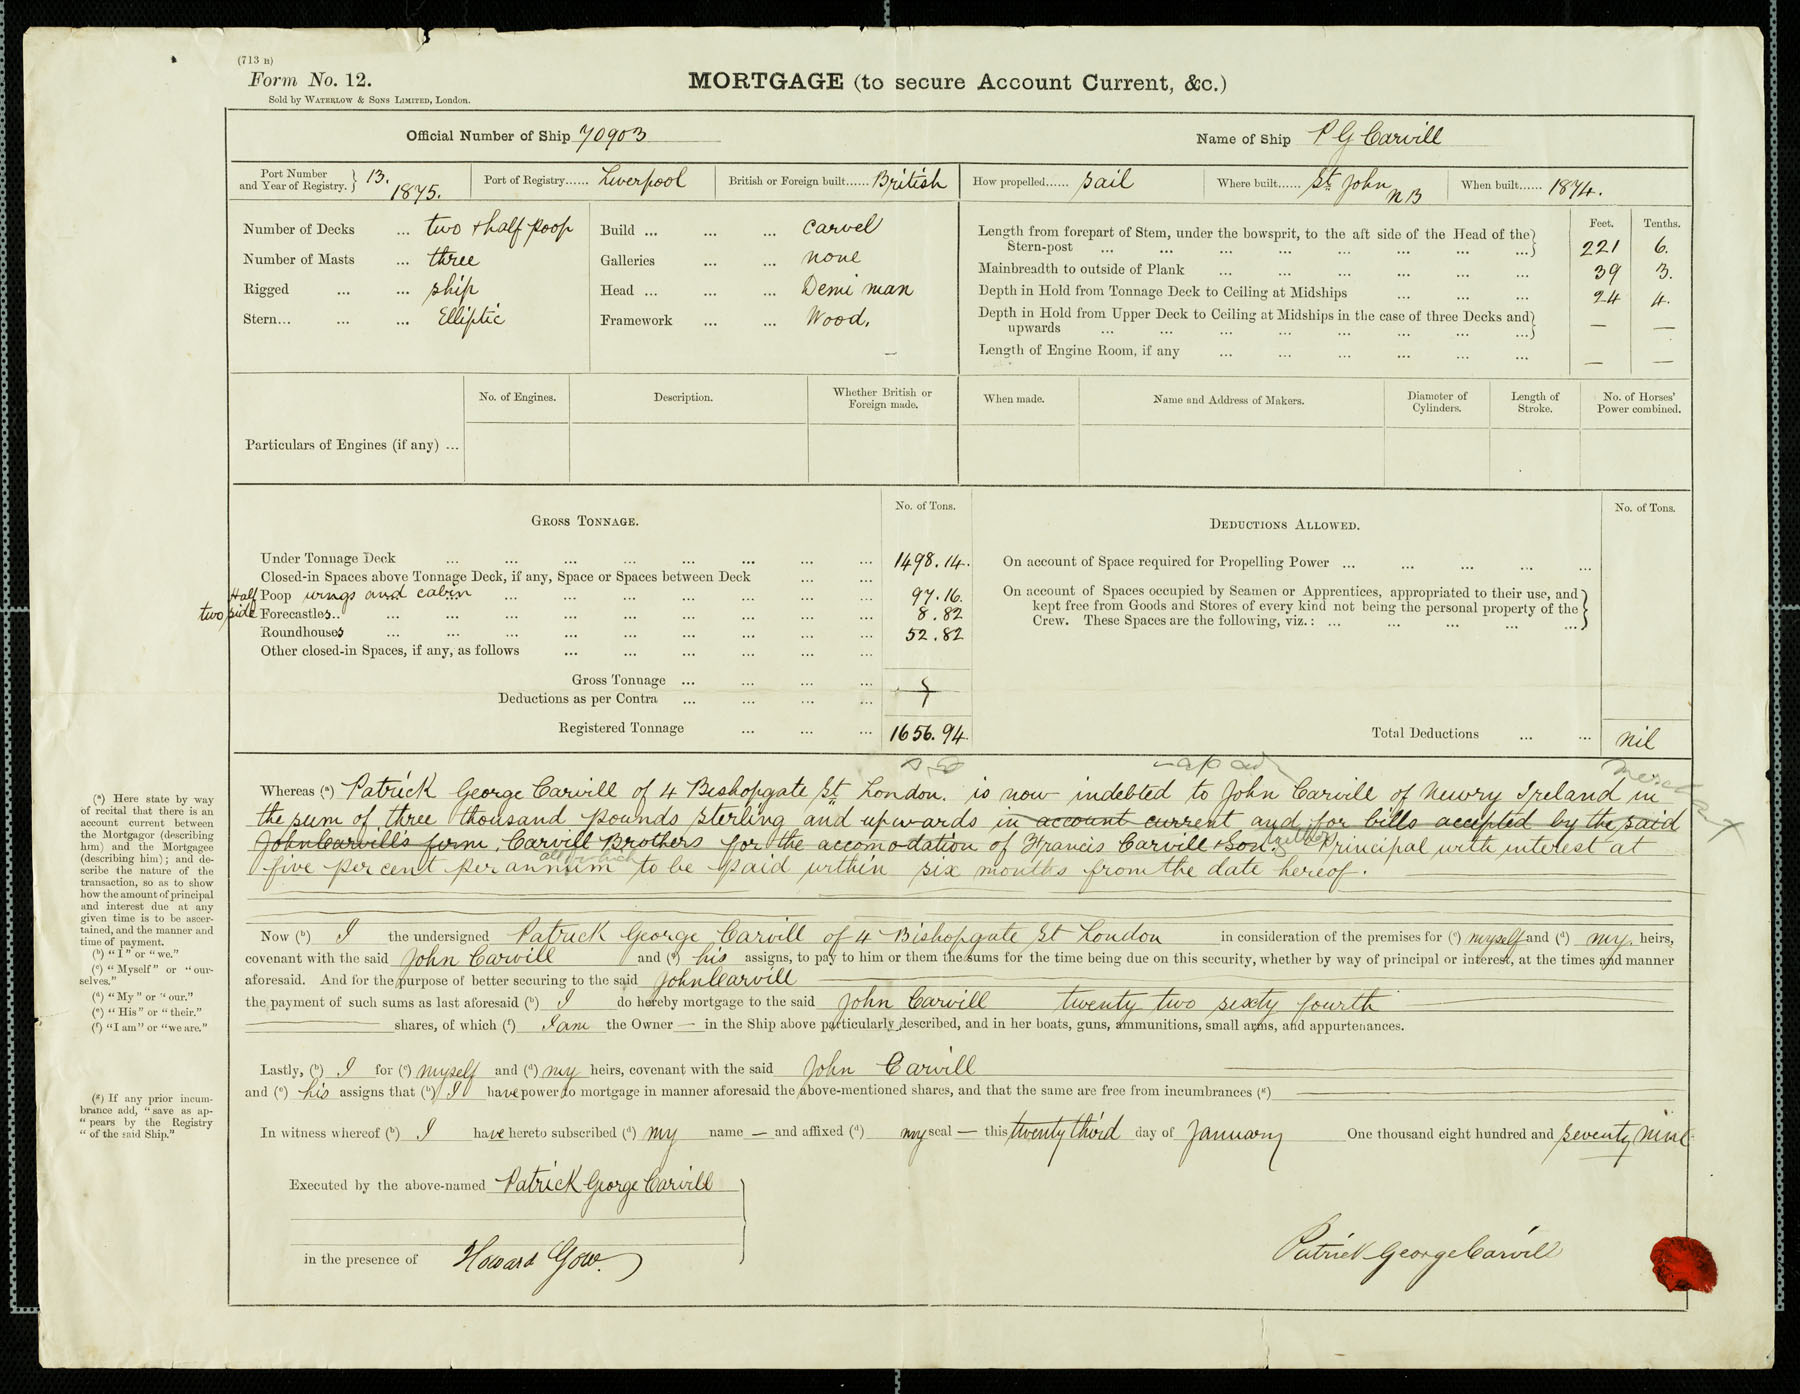 (713 B)
Form No. 12.
Sold by Waterlow & Sons Limited, London.
MORTGAGE (to secure Account Current, &c.)
Official Number of Ship 70903 Name of Ship P G Carvill
Port Number and Year of Registry. } 13. 1875. Port of Registry...... Liverpool British or Foreign built...... British How propelled...... Sail Where built...... St. John N B When built...... 1874.
Number of Decks ... two & half poop
Number of Masts ... three
Rigged ... ... ship
Stern... ... ... Elliptic
Build ... ... ... carvel
Galleries ... ... none
Head ... ... ... Demi man
Framework ... ... Wood.
Feet. Tenths.
Length from forepart of Stem, under the bowsprit, to the aft side of the Head of the
Stern-post ... ... ... ... ... ... ... ...} 221 6.
Mainbreadth to outside of Plank ... ... ... ... ... ... 39 3.
Depth in Hold from Tonnage Deck to Ceiling at Midships ... ... ... 24 4.
Depth in Hold from Upper Deck to Ceiling at Midships in the case of three Decks and
upwards ... ... ... ... ... ... ... ...} — —
Length of Engine Room, if any ... ... ... ... ... ... — —
No. of Engines. Description. Whether British or Foreign made. When made. Name and Address of Makers. Diameter of Cylinders. Length of Stroke. No. of Horses' Power combined.
Particulars of Engines (if any) ...
Gross Tonnage. No. of Tons.
Under Tonnage Deck ... ... ... ... ... ... ... ... 1498.14.
Closed-in Spaces above Tonnage Deck, if any, Space or Spaces between Deck ... ...
Half Poop wings and cabin ... ... ... ... ... ... 97.16.
two side Forecastles.. ... ... ... ... ... ... ... ... 8.82
Roundhouses ... ... ... ... ... ... ... ... ... 52.82
Other closed-in Spaces, if any, as follows ... ... ... ... ... ...
Gross Tonnage ... ... ... ...
Deductions as per Contra ... ... ... ...
Registered Tonnage ... ... ... 1656.94.
Deductions Allowed. No. of Tons.
On account of Space required for Propelling Power ... ... ... ... ...
On account of Spaces occupied by Seamen or Apprentices, appropriated to their use, and
kept free from Goods and Stores of every kind not being the personal property of the
Crew. These Spaces are the following, viz.: ... ... ... ... ...}
Total Deductions ... ... nil
Whereas (a) Patrick George Carvill of 4 Bishopgate St London. is now indebted to John Carvill of Newry Ireland in
the sum of three thousand pounds sterling and upwards in account current and for bills accepted by the said
John Carvill's firm, Carvill Brothers for the accomodation of Francis Carvill & Son. Principal with interest at
five per cent per annum to be paid within six months from the date hereof.
merchant
Now (b) I the undersigned Patrick George Carvill of 4 Bishopgate St London in consideration of the premises for (c) myself and (d) my. heirs,
covenant with the said John Carvill and (e) his assigns, to pay to him or them the sums for the time being due on this security, whether by way of principal or interest, at the times and manner
aforesaid. And for the purpose of better securing to the said John Carvill
the payment of such sums as last aforesaid (b) I do hereby mortgage to the said John Carvill twenty two sixty fourth
shares, of which (f) I am the Owner — in the Ship above particularly described, and in her boats, guns, ammunitions, small arms, and appurtenances.
Lastly, (b) I for (c) myself and (d) my heirs, covenant with the said John Carvill
and (e) his assigns that (b) I have power to mortgage in manner aforesaid the above-mentioned shares, and that the same are free from incumbrances (g)
In witness whereof (b) I have hereto subscribed (d) my name — and affixed (d) my seal — this twenty third day of January One thousand eight hundred and seventy nine
Executed by the above-named Patrick George Carvill
in the presence of Howard Gow.
Patrick George Carvill
(a) Here state by way
of recital that there is an
account current between
the Mortgagor (describing
him) and the Mortgagee
(describing him); and de-
scribe the nature of the
transaction, so as to show
how the amount of principal
and interest due at any
given time is to be ascer-
tained, and the manner and
time of payment.
(b) "I" or "we."
(c) "Myself" or "our-
selves."
(d) "My" or "our."
(e) "His" or "their."
(f) "I am" or "we are."
(g) If any prior incum-
brance add, "save as ap-
"pears by the Registry
"of the said Ship."